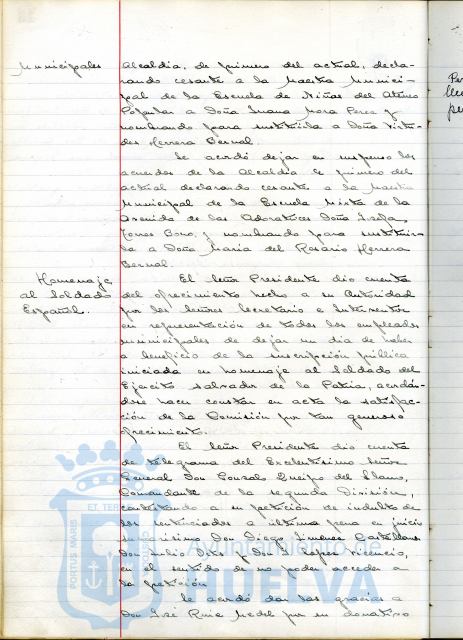 Municipales
Alcaldia, de primero del actual, decla-
rando cesante a la Maestra Munici-
pal de la Escuela de Niñas del Ateneo
Popular a Doña Juana Mora Perea y
nombrando para sustituirla a Doña Virtu-
des Herrera Bernal.
Se acordó dejar en suspenso los
acuerdos de la Alcaldia de primero del
actual declarando cesante a la Maestra
Municipal de la Escuela Mixta de la
Avenida de las Adoratrices Doña
Torres y nombrando para sustituir-
la a Doña Maria del Rosario Herrera
Bernal.
Homenaje
al Soldado
Español.
El Señor Presidente dio cuenta
del ofrecimiento hecho a su Autoridad
por los señores Secretario e Interventor
en representación de todos los empleados
municipales de dejar un dia de haber
a beneficio de la suscripción pública
iniciada en homenaje al Soldado del
Ejercito salvador de la Patria, acordán-
dose hacer constar en acta la satisfac-
ción de la Comisión por tan generoso
ofrecimiento.
El Señor Presidente dio cuenta
de telegrama del Excelentisimo Señor
General Don Gonzalo Queipo del Llano,
Comandante de la segunda División,
contestando a su petición de indulto de
los sentenciados a ultima pena en juicio
sumarisimo Don Diego Jimenez Castellano
Don Julio y Don
en el sentido de no poder acceder a
la petición.
Se acordó dar las gracias a
Don José Ruiz Medel por su donativo
PORTUS MARIS
ET TER
Ayuntamiento de
HUELVA